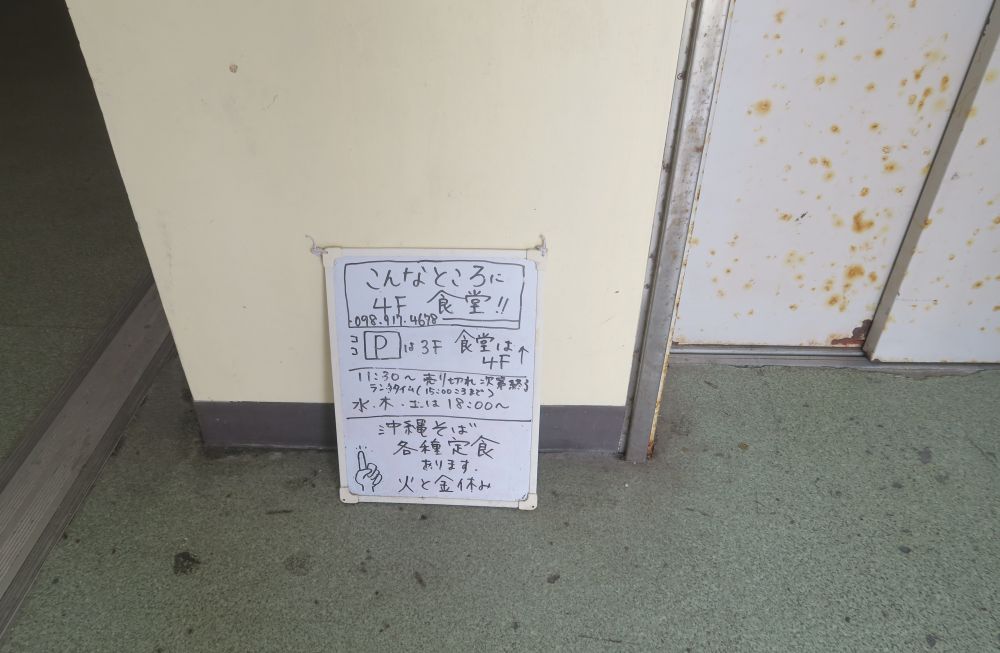 こんなところに
4F 食堂!!
098.917.4678
ココ P は 3F 食堂は
4F ↑
11:30〜 売り切れ次第終了
ランチタイム(15:00ころまで)
水.木.土は 18:00〜
沖縄そば
各種定食
あります.
火と金休み